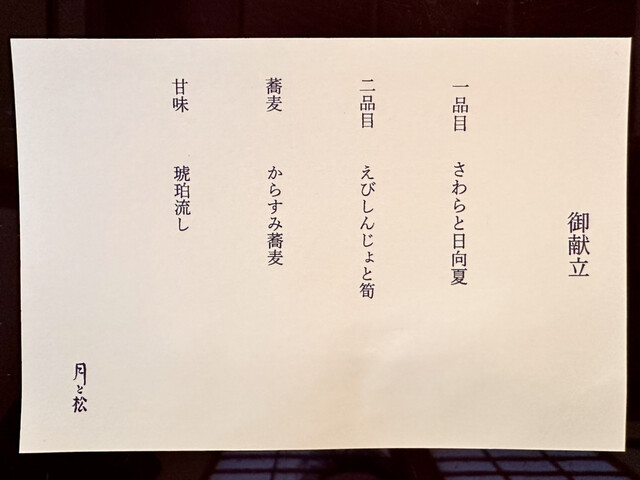 御献立
一品目　さわらと日向夏
二品目　えびしんじょと筍
蕎麦　からすみ蕎麦
甘味　琥珀流し
月と松